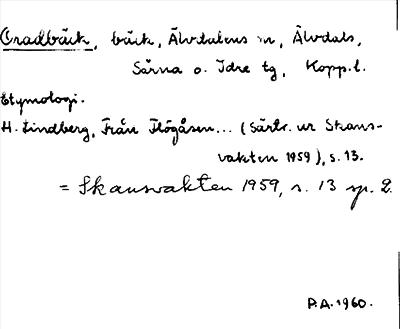 Oradbäck, bäck, Älvdalens sn, Älvdals,
Särna o. Idre tg, Kopp. l.
Etymologi.
H. Lindberg, Från Flögåsen... (Särtr. ur Skans-
vakten 1959), s. 13.
= Skansvakten 1959, s. 13 sp. 2.
P.A. 1960.